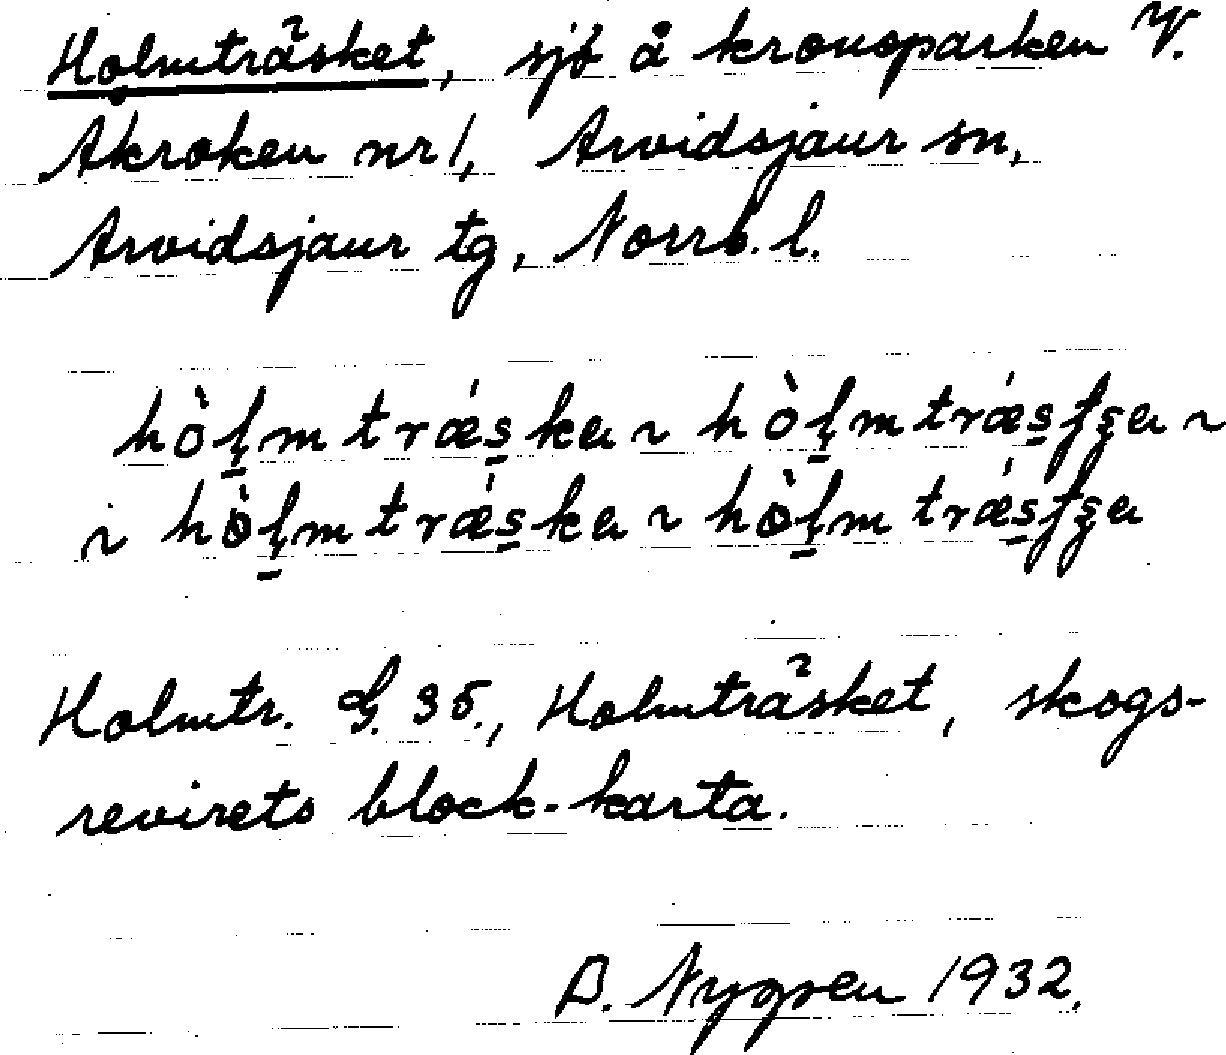 Holmträsket, sjö å kronoparken V.
Åkroken nr 1, Arvidsjaur sn,
Arvidsjaur tg, Norrb. l.
hòl̥m trǽs̠ka ~ hòl̥m trǽs̠ʃʂa ~
~ hòl̥m trǽs̠ka ~ hòl̥m trǽs̠ʃʂa
Holmtr. G. 35., Holmträsket, skogs-
revirets block-karta.
D. Nygren 1932.